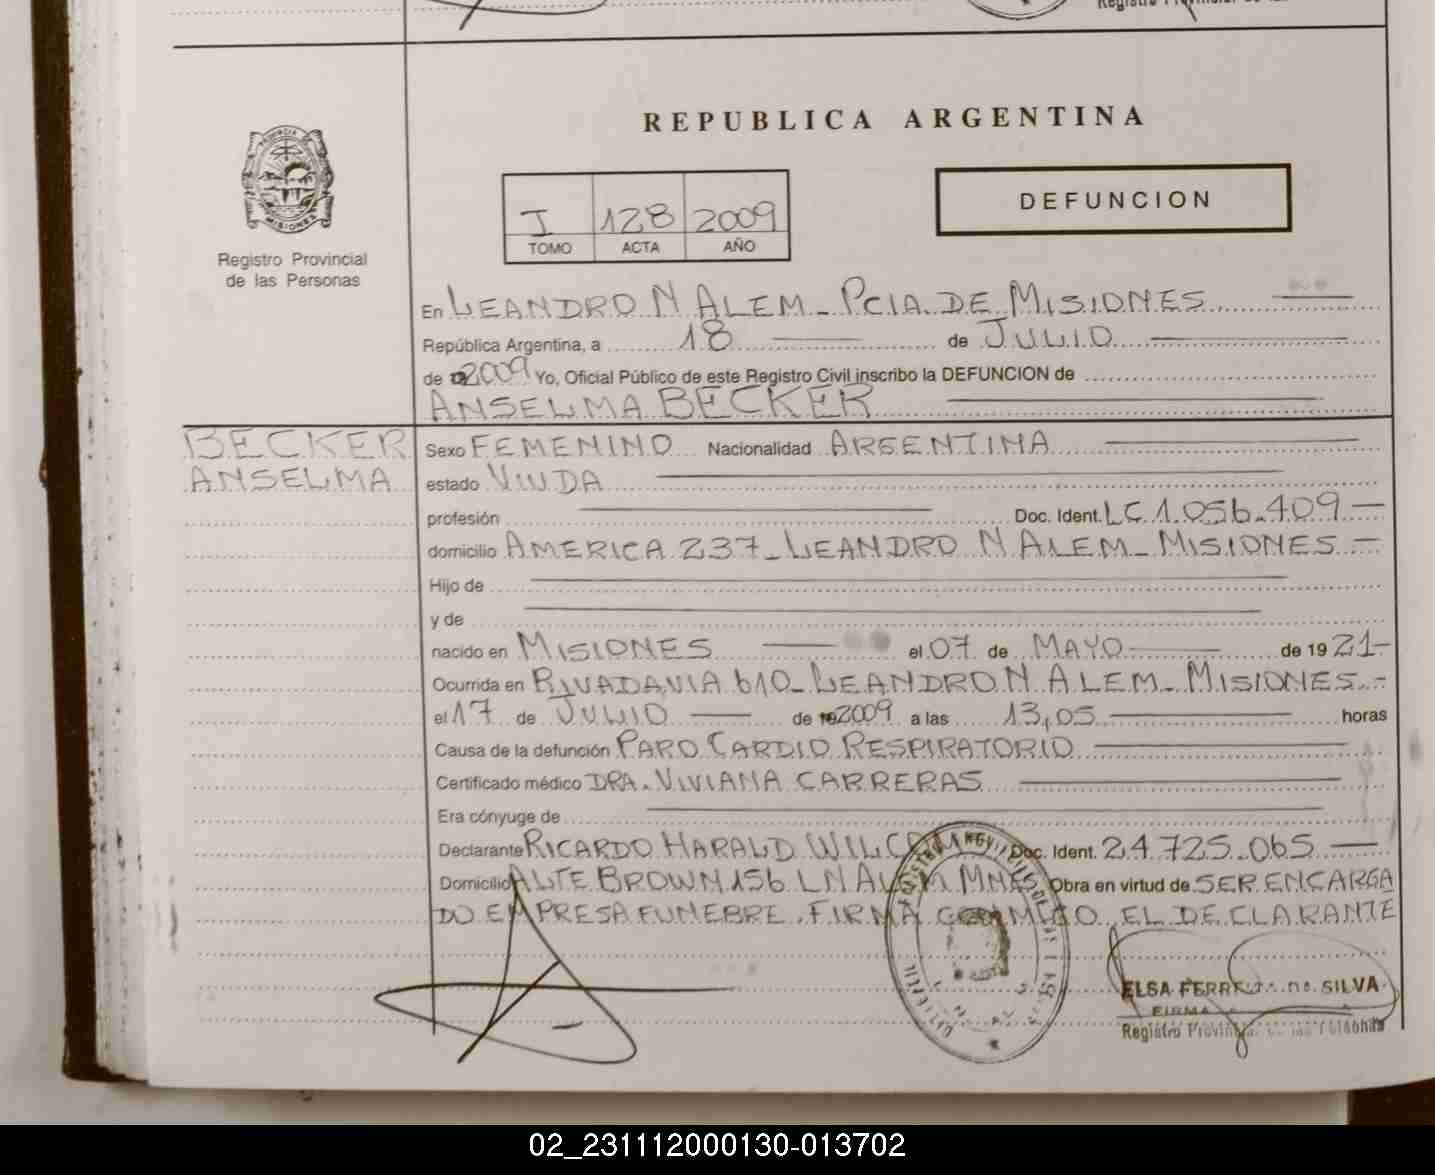 Registro Provincial de las
REPUBLICA ARGENTINA
PROVINCIA DE
MISIONES
Registro Provincial
de las Personas
I 128 2009
TOMO ACTA AÑO
DEFUNCION
En LEANDRO N ALEM - PCIA. DE MISIONES
República Argentina, a 18 de JULIO
de 2009 Yo, Oficial Público de este Registro Civil inscribo la DEFUNCION de
ANSELMA BECKER
BECKER
ANSELMA
Sexo FEMENINO Nacionalidad ARGENTINA
estado VIUDA
profesión Doc. Ident. LC 1.056.409 -
domicilio AMERICA 237 - LEANDRO N ALEM - MISIONES -
Hijo de
y de
nacido en MISIONES el 07 de MAYO de 1921 -
Ocurrida en RIVADAVIA 610 - LEANDRO N ALEM - MISIONES -
el 17 de JULIO de 2009 a las 13,05 horas
Causa de la defunción PARO CARDIO RESPIRATORIO
Certificado médico DRA. VIVIANA CARRERAS
Era cónyuge de
Declarante RICARDO HARALD Doc. Ident. 24.725.065 -
Domicilio ALTE BROWN 156 LN ALEM MNES Obra en virtud de SER ENCARGA
DO EMPRESA FUNEBRE. FIRMA CONMIGO EL DECLARANTE
ELSA SILVA
FIRMA
Registro
02_231112000130-013702